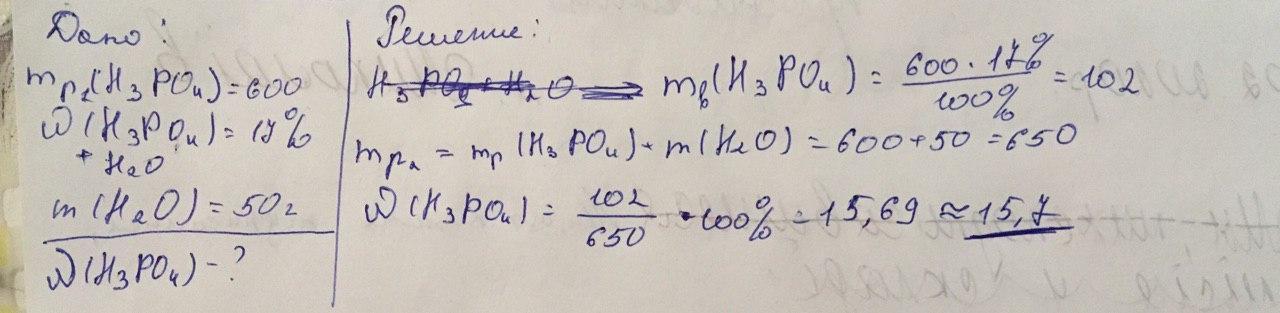 Дано:
mр₁(H₃PO₄)=600
ω(H₃PO₄)=17%
+ H₂O
m(H₂O)=50г
ω(H₃PO₄)-?
Решение:
H₃PO₄+H₂O ⟶ mв(H₃PO₄)= 600·17% / 100% =102
mр₂ = mр(H₃PO₄)+m(H₂O)=600+50=650
ω(H₃PO₄)= 102 / 650 ·100%=15,69≈15,7